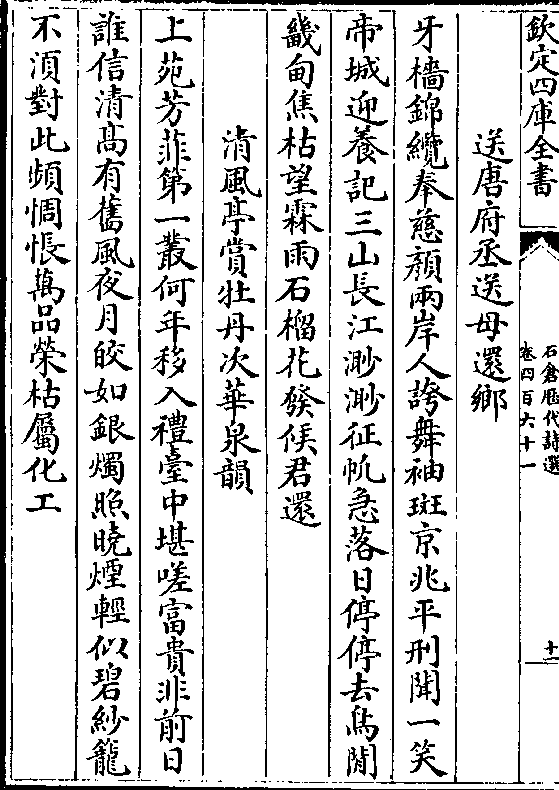 欽定四庫全書
石倉歷代詩選
卷四百六十一
十一
送唐府丞送母還鄉
牙檣錦纜奉慈顔兩岸人誇舞袖斑京兆平刑聞一笑
帝城迎養記三山長江渺渺征帆急落日停停去鳥閒
畿甸焦枯望霖雨石榴花發候君還
清風亭賞牡丹次華泉韻
上苑芳菲第一叢何年移入禮臺中堪嗟富貴非前日
誰信清髙有舊風夜月皎如銀燭照曉煙輕似碧紗籠
不湏對此頻惆悵萬品榮枯屬化工